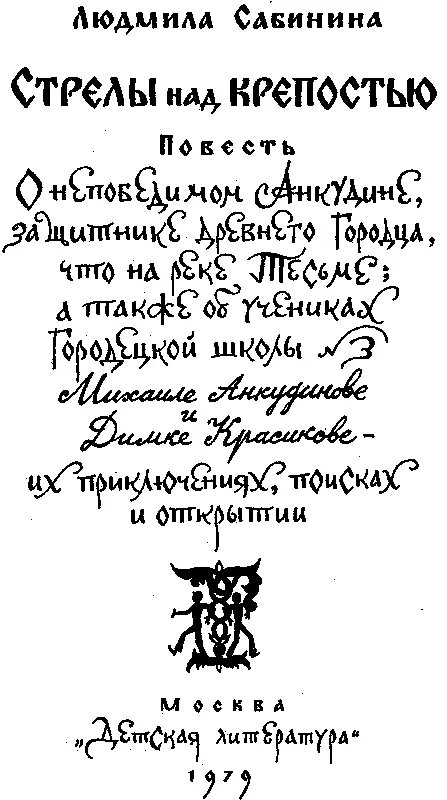 Людмила Сабинина
Стрелы над крепостью
Повесть
О непобедимом Анкудине,
защитнике древнего Городца,
что на реке Тесьме;
а также об учениках
Городецкой школы №3
Михаиле Анкудинове
и
Димке Красикове –
их приключениях, поисках
и открытии
Москва
„Детская литература“
1979